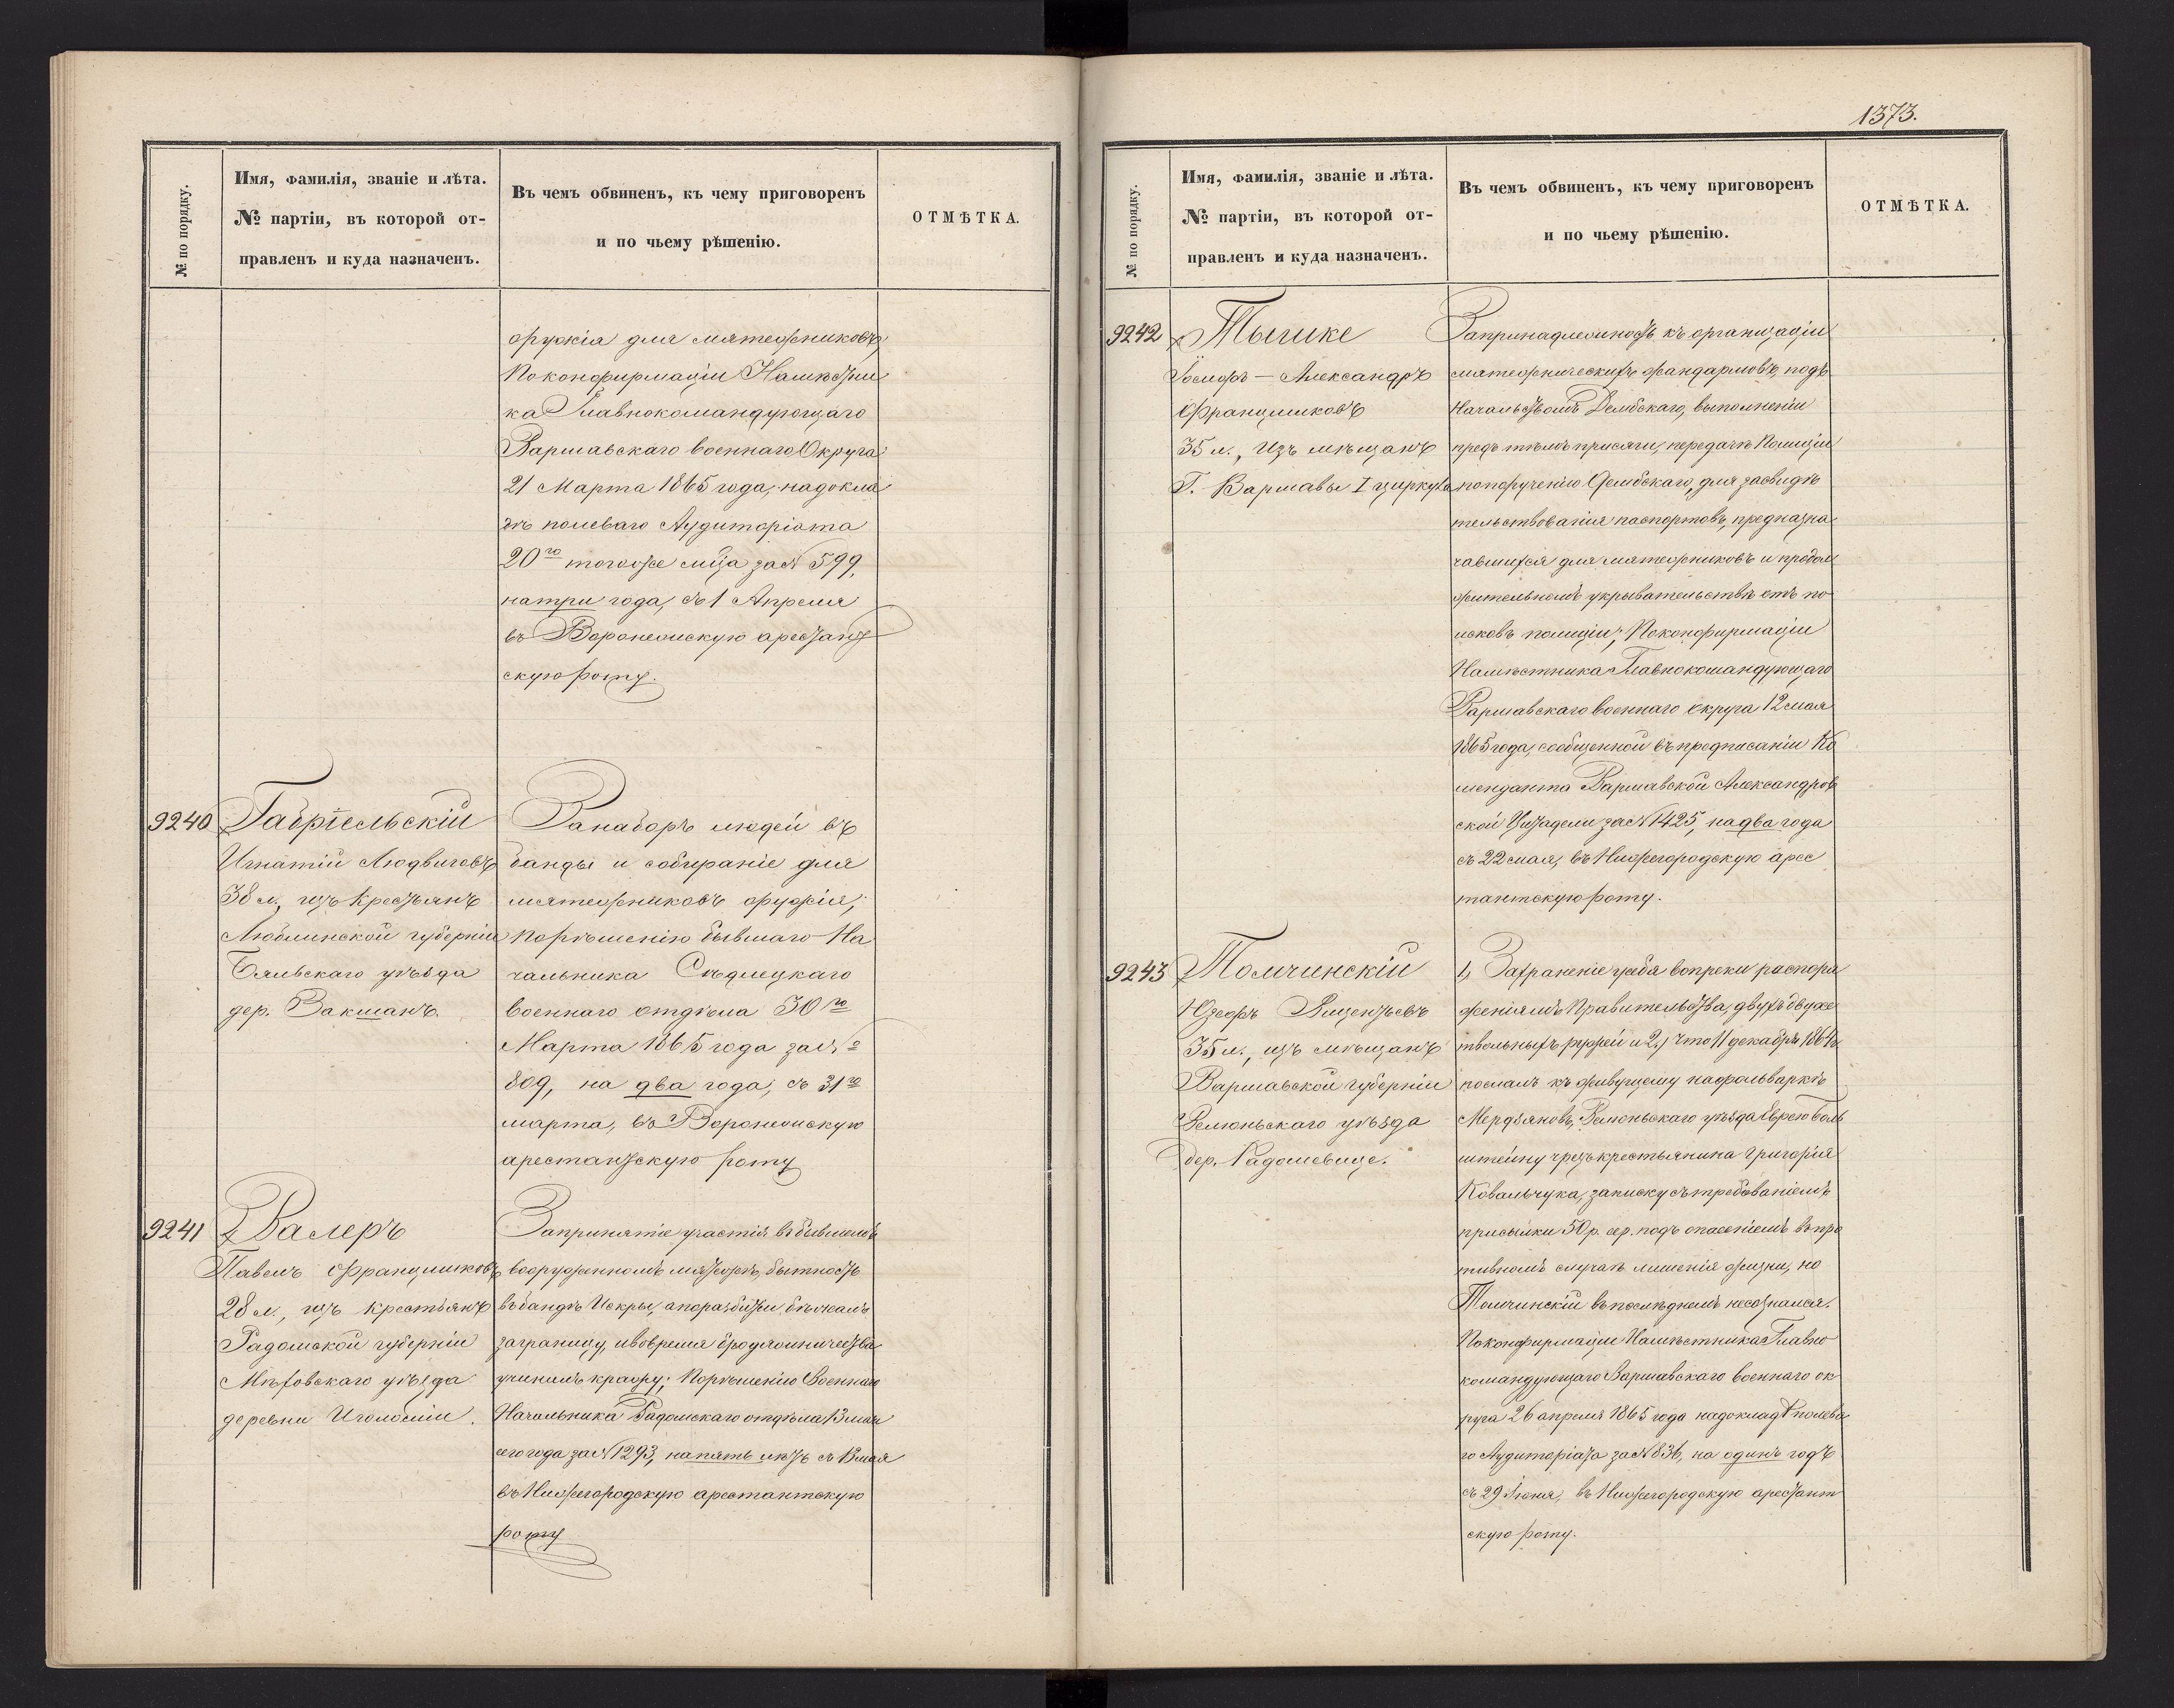 № по порядку.
Имя, фамилія, званіе и лѣта.
№ партіи, въ которой от-
правленъ и куда назначенъ.
Въ чемъ обвиненъ, къ чему приговоренъ
и по чьему рѣшенію.
ОТМѢТКА.
оружія для мятежниковъ,
По конфирмаціи Намѣстни
ка Главнокомандующаго
Варшавскаго военнаго Округа
21 Марта 1865 года, на докла
дѣ полеваго Аудиторіата
20го тогоже мца за № 599,
на три года, съ 1 Апреля
въ Воронежскую арестант
скую роту.
9240
Габріельскій
Игнатій Людвиговъ
38 л., изъ крестьянъ
Люблинской губерніи
Бяльскаго уѣзда
дер. Вакманъ.
За наборъ людей въ
банды и собираніе для
мятежниковъ оружія;
По рѣшенію бывшаго На
чальника Сѣдлецкаго
военнаго отдѣла 30го
Марта 1865 года за №
809, на два года, съ 31го
марта, въ Воронежскую
арестантскую роту
9241
Валеръ
Павелъ Францишковъ
28 л., изъ крестьянъ
Радомской губерніи
Мѣховскаго уѣзда
деревни Иголоміи.
За принятіе участія въ бывшемъ
вооруженномъ мятежѣ, бытность
въ бандѣ Искры, а по разбитіи бѣжалъ
заграницу, и во время бродяжничества
учинилъ кражу; По рѣшенію Военнаго
Начальника Радомскаго отдѣла 13 мая
сего года за № 1293, на пять лѣтъ съ 13 мая
въ Нижегородскую арестантскую
роту
1373.
№ по порядку.
Имя, фамилія, званіе и лѣта.
№ партіи, въ которой от-
правленъ и куда назначенъ.
Въ чемъ обвиненъ, къ чему приговоренъ
и по чьему рѣшенію.
ОТМѢТКА.
9242
Тышке
Іосифъ – Александръ
Францишковъ
35 л., Изъ мѣщанъ
Г. Варшавы I циркула
За принадлежность къ организаціи
мятежническихъ жандармовъ, подъ
Начальствомъ Дембскаго, выполненіи
предъ тѣмъ присяги, передачѣ Полиціи
по порученію Дембскаго, для засвидѣ
тельствованія паспортовъ, предназна
чавшихся для мятежниковъ и продол
жительномъ укрывательствѣ отъ по
исковъ полиціи; По конфирмаціи
Намѣстника Главнокомандующаго
Варшавскаго военнаго округа 12 мая
1865 года, сообщенной въ предписаніи Ко
менданта Варшавской Александров
ской Цитадели за № 1425, на два года
съ 22 мая, въ Нижегородскую арес
тантскую роту.
9243
Томчинскій
Юзефъ Винцентьевъ
35 л., изъ мѣщанъ
Варшавской губерніи
Велюньскаго уѣзда
дер. Радошевице.
1, За храненіе у себя вопреки распоря
женіямъ Правительства, двухъ двухс
твольныхъ ружей и 2,) что 11 декабря 1864 г.
послалъ къ живущему на фольваркѣ
Мердзяновъ, Велюньскаго уѣзда Еврею Голь
штейну чрезъ крестьянина Григорія
Ковальчука, записку съ требованіемъ
присылки 50 р. сер. подъ опасеніемъ въ про
тивномъ случаѣ лишенія жизни, но
Томчинскій въ послѣднемъ несознался.
По конфирмаціи Намѣстника Главно
командующаго Варшавскаго военнаго ок
руга 26 апреля 1865 года на докладѣ полева
го Аудиторіата за № 836, на одинъ годъ
съ 29 Іюня, въ Нижегородскую арестант
скую роту.